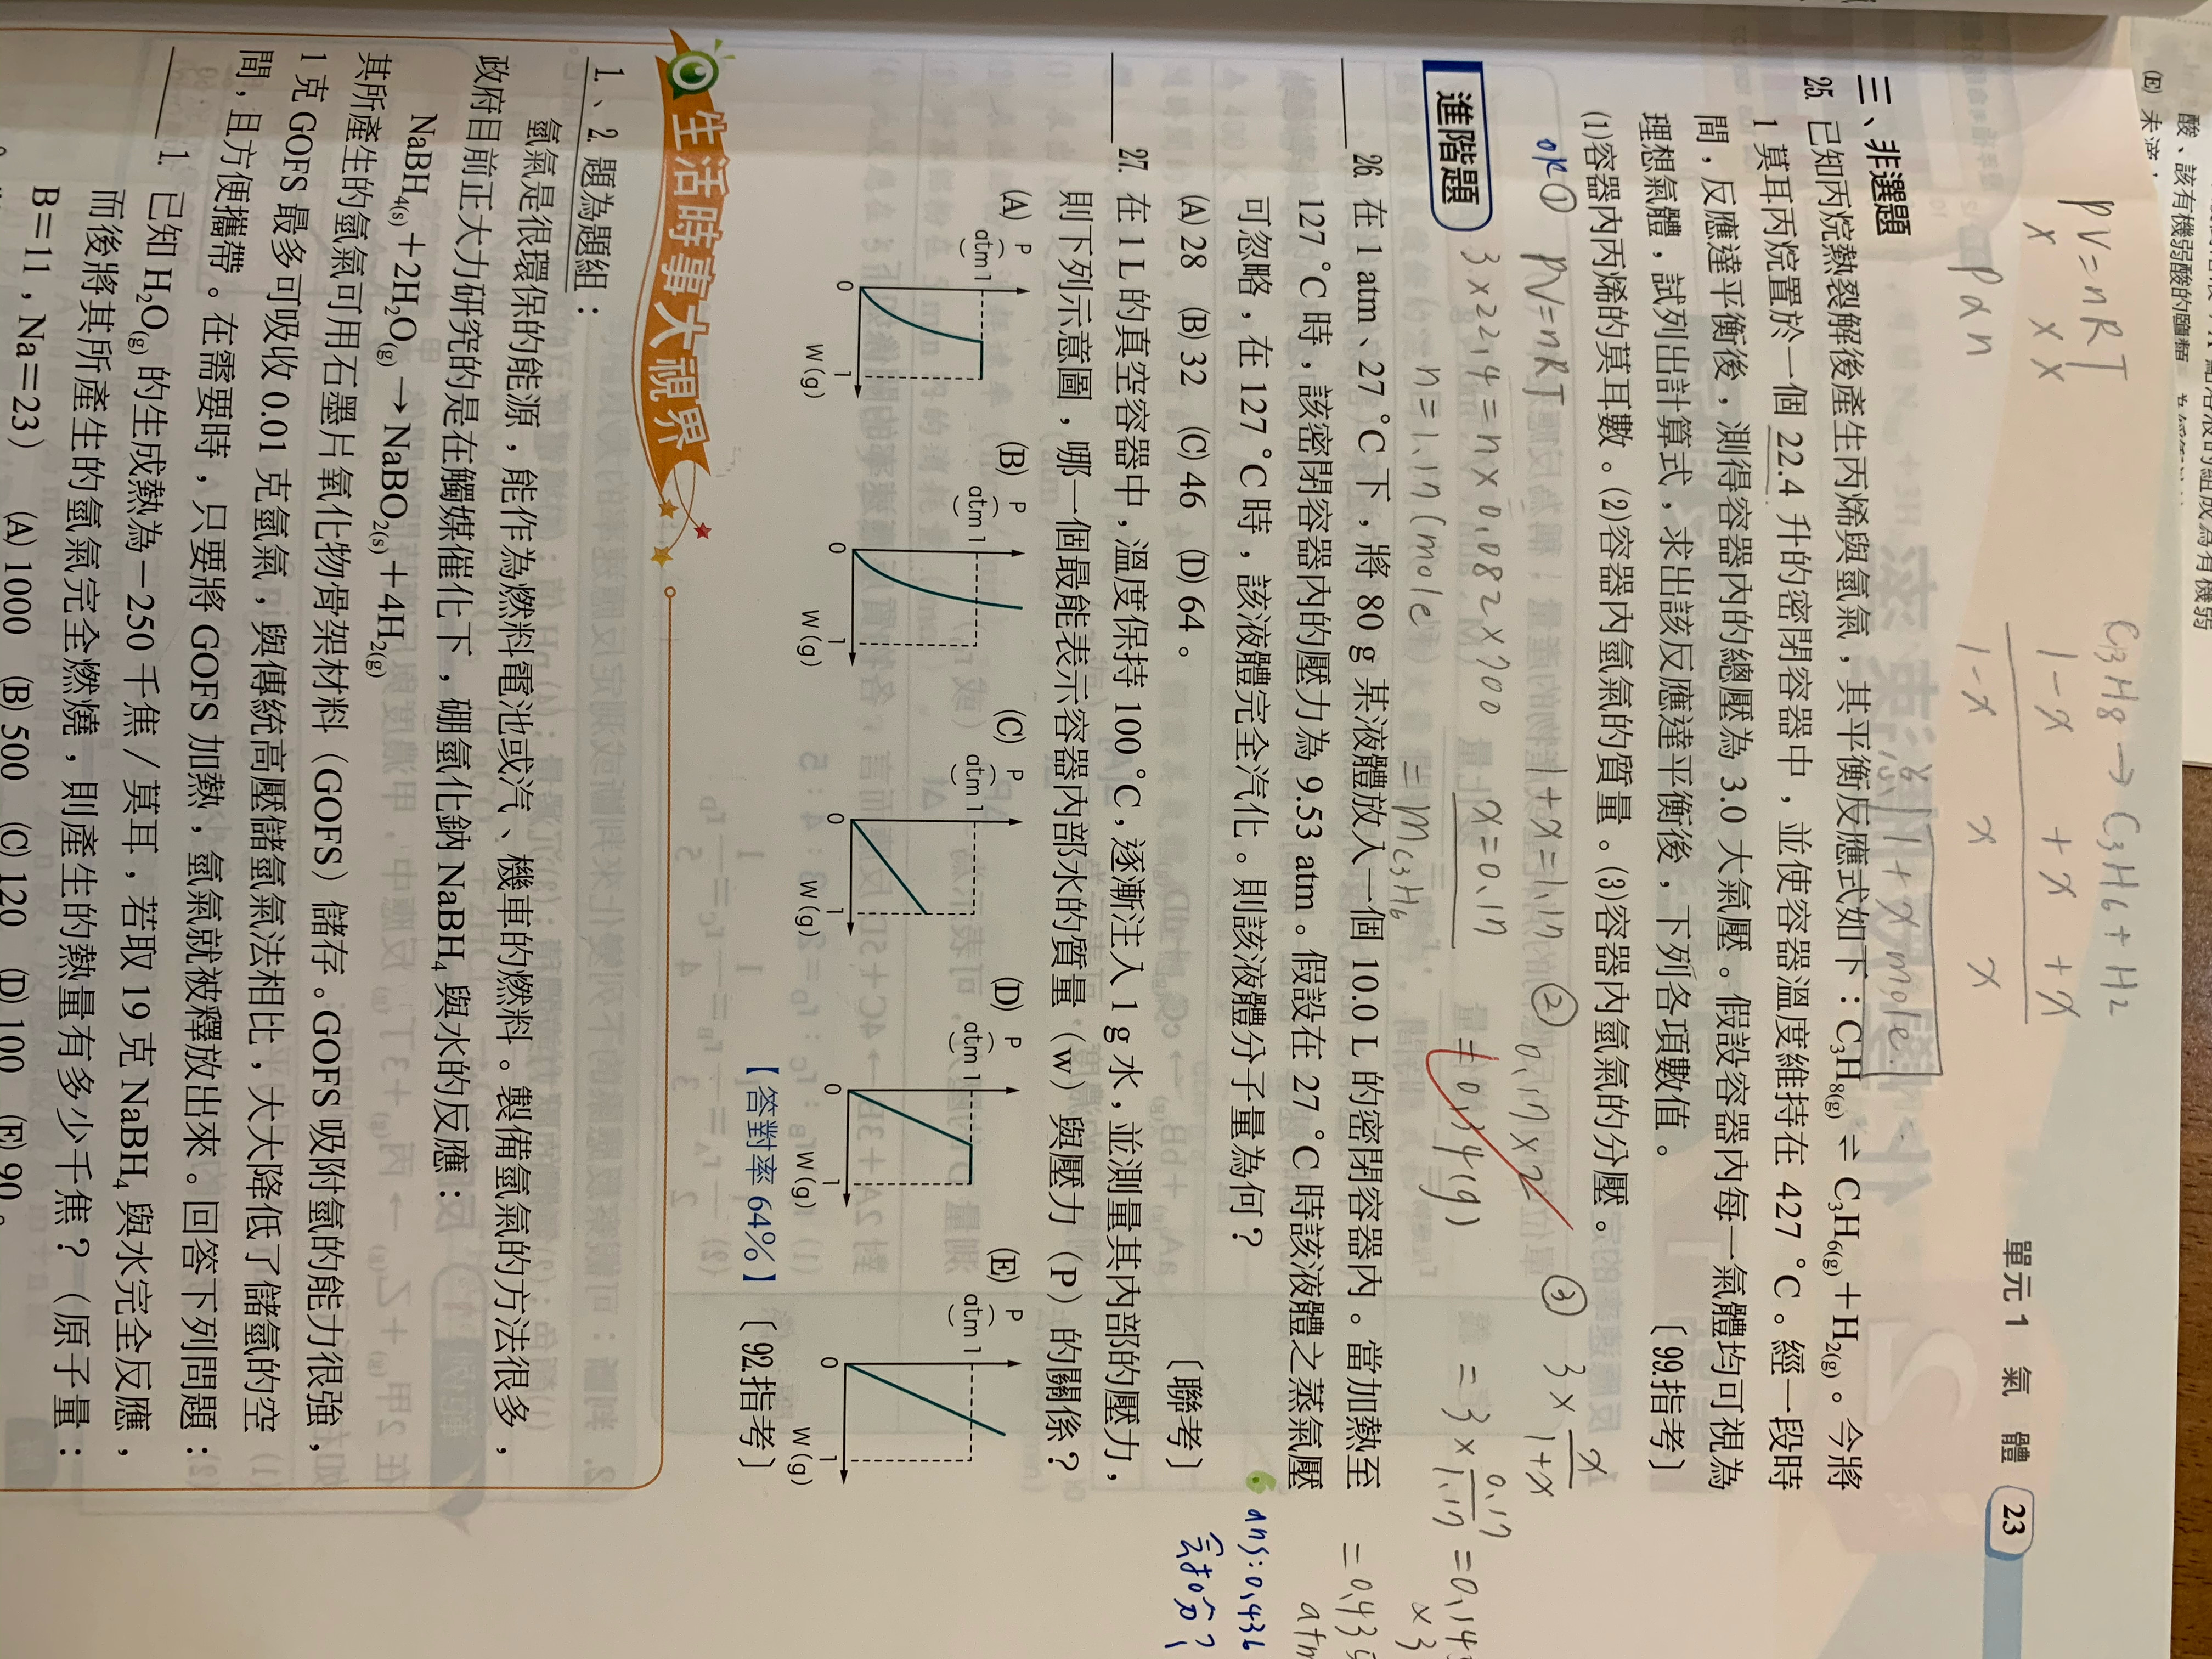 單元 1 氣 體 23
(E) 未滴，
PV = nRT
x x x
P α n
C3H8 → C3H6 + H2
1-x +x +x
1-x x x
1+x mole.
三、非選題
25. 已知丙烷熱裂解後產生丙烯與氫氣，其平衡反應式如下：C₃H₈(g) ⇌ C₃H₆(g)＋H₂(g)。今將
1 莫耳丙烷置於一個 22.4 升的密閉容器中，並使容器溫度維持在 427 °C。經一段時
間，反應達平衡後，測得容器內的總壓為 3.0 大氣壓。假設容器內每一氣體均可視為
理想氣體，試列出計算式，求出該反應達平衡後，下列各項數值。 〔99.指考〕
(1)容器內丙烯的莫耳數。(2)容器內氫氣的質量。(3)容器內氫氣的分壓。
OK ① PV = nRT 1+x = 1.17 ② 0.17 x 2 ③ 3 x x/1+x
3 x 22.4 = n x 0.082 x 700 x = 0.17 = 0.34(g) = 3 x 0.17/1.17 = 0.145
n = 1.17 (mole) = mC3H6 x3
= 0.435
atm
ans: 0.436
会扣分？
進階題
26. 在 1 atm、27 °C 下，將 80 g 某液體放入一個 10.0 L 的密閉容器內。當加熱至
127 °C 時，該密閉容器內的壓力為 9.53 atm。假設在 27 °C 時該液體之蒸氣壓
可忽略，在 127 °C 時，該液體完全汽化。則該液體分子量為何？
(A) 28 (B) 32 (C) 46 (D) 64。 〔聯考〕
27. 在 1 L 的真空容器中，溫度保持 100 °C，逐漸注入 1 g 水，並測量其內部的壓力，
則下列示意圖，哪一個最能表示容器內部水的質量（w）與壓力（P）的關係？
(A) P (atm) 1 0 1 W (g)
(B) P (atm) 1 0 1 W (g)
(C) P (atm) 1 0 1 W (g)
(D) P (atm) 1 0 1 W (g)
(E) P (atm) 1 0 1 W (g)
【答對率 64%】〔92.指考〕
生活時事大視界
1.、2. 題為題組：
氫氣是很環保的能源，能作為燃料電池或汽、機車的燃料。製備氫氣的方法很多，
政府目前正大力研究的是在觸媒催化下，硼氫化鈉 NaBH₄ 與水的反應：
NaBH₄(s)＋2H₂O(g) → NaBO₂(s)＋4H₂(g)
其所產生的氫氣可用石墨片氧化物骨架材料（GOFS）儲存。GOFS 吸附氫的能力很強，
1 克 GOFS 最多可吸收 0.01 克氫氣，與傳統高壓儲氫氣法相比，大大降低了儲氫的空
間，且方便攜帶。在需要時，只要將 GOFS 加熱，氫氣就被釋放出來。回答下列問題：
1. 已知 H₂O(g) 的生成熱為－250 千焦／莫耳，若取 19 克 NaBH₄ 與水完全反應，
而後將其所產生的氫氣完全燃燒，則產生的熱量有多少千焦？（原子量：
B＝11，Na＝23） (A) 1000 (B) 500 (C) 120 (D) 100 (E) 90。